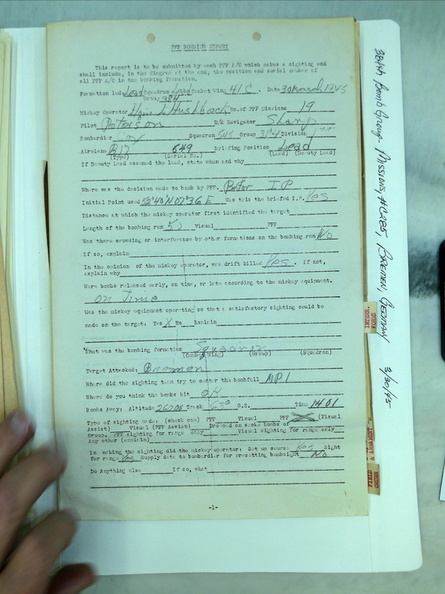 PFF BOMBING REPORT
This report is to be submitted by each PFF A/C which makes a sighting and
shall include, in the diagram at the end, the position and serial number of
all PFF A/C in the bombing formation.
Formation led: Lead Squadron Combat Wing 41 C. Date 30 March 1945
Group 384
Mickey Operator No. of PFF Missions 19
Pilot Peterson D/R Navigator Sharp
Bombardier Squadron Group 384 Division
Airplane B17 849 Briefing Position Lead
(Type) (Serial No.) (Lead) (Deputy Lead)
If Deputy Lead assumed the lead, state when and why
Where was the decision made to bomb by PFF. I.P
Initial Point used Was this the briefed I.P. Yes
Distance at which the mickey operator first identified the target
Length of the bombing run Visual PFF
Was there crowding or interference by other formations on the bombing run No
If so, explain
In the opinion of the mickey operator, was drift killed Yes. If not,
explain why
Were bombs released early, on time, or late according to the mickey equipment.
on Time
Was the mickey equipment operating so that a satisfactory sighting could be
made on the target: Yes X No Explain
What was the bombing formation Squadron
(Combat Wing) (Group) (Squadron)
Target Attacked: Bremen
Where did the sighting team try to center the bombfall MPI
Where do you think the bombs hit
Bombs Away: Altitude Track Time 1401
Type of sighting made: (check one) PFF Visual PFF (Visual
Assist) Visual (PFF Assist) Dropped on smoke bombs of
Group. PFF sighting for range only Visual sighting for range only
Any other (explain)
In making the sighting did the mickey operator: Set up course Yes Sight
for range Yes Supply data to bombardier for presetting bombsight No
Do Anything else If so, what
-1-
384th Bomb Group - Mission #285, Bremen, Germany 3/30/45